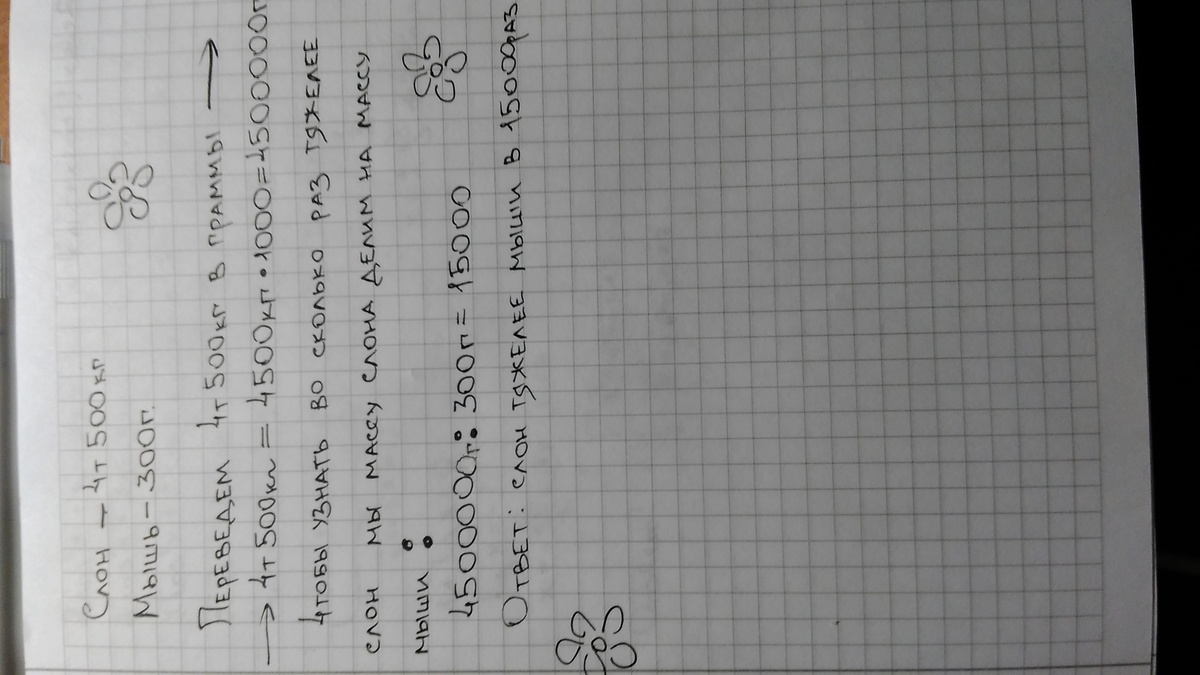 Слон – 4т 500кг
Мышь – 300г.
Переведем 4т 500кг в граммы →
→ 4т 500кг = 4500кг • 1000 = 4500000г
Чтобы узнать во сколько раз тяжелее
слон мы массу слона делим на массу
мыши :
4500000г : 300г = 15000
Ответ: слон тяжелее мыши в 15000раз